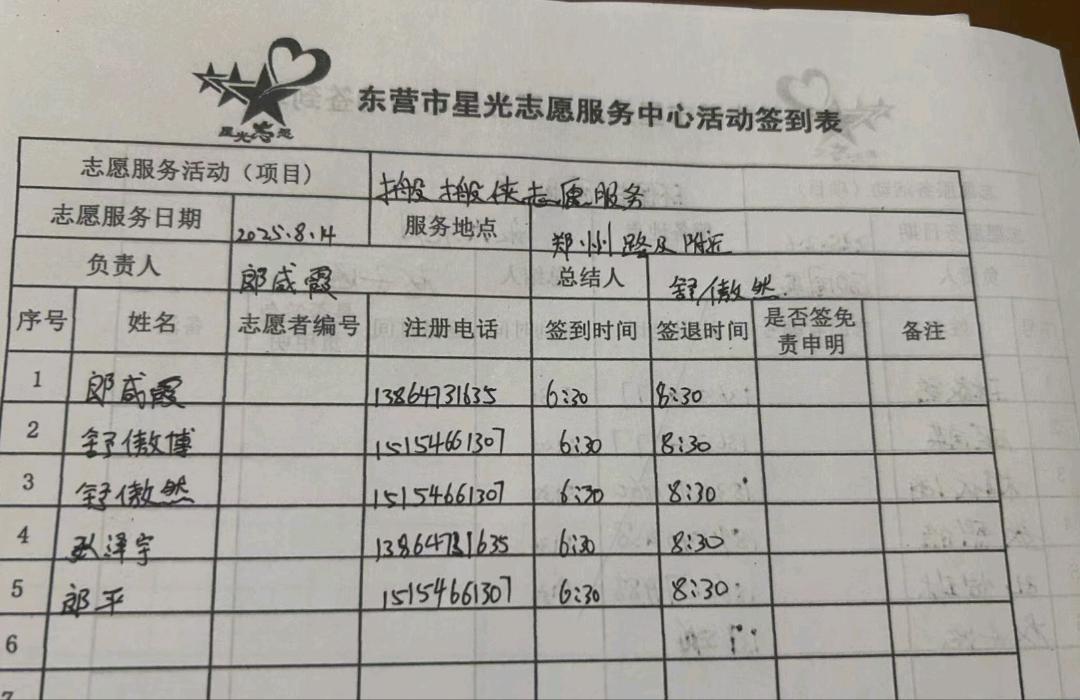 星光志愿
东营市星光志愿服务中心活动签到表
志愿服务活动（项目） 搬搬侠志愿服务
志愿服务日期 2025.8.14 服务地点 郑州路及附近
负责人 郎咸霞 总结人 舒傲然
序号 姓名 志愿者编号 注册电话 签到时间 签退时间 是否签免责申明 备注
1 郎咸霞 13864731635 6:30 8:30
2 舒傲博 15154661307 6:30 8:30
3 舒傲然 15154661307 6:30 8:30
4 泽宇 13864731635 6:30 8:30
5 郎平 15154661307 6:30 8:30
6
7